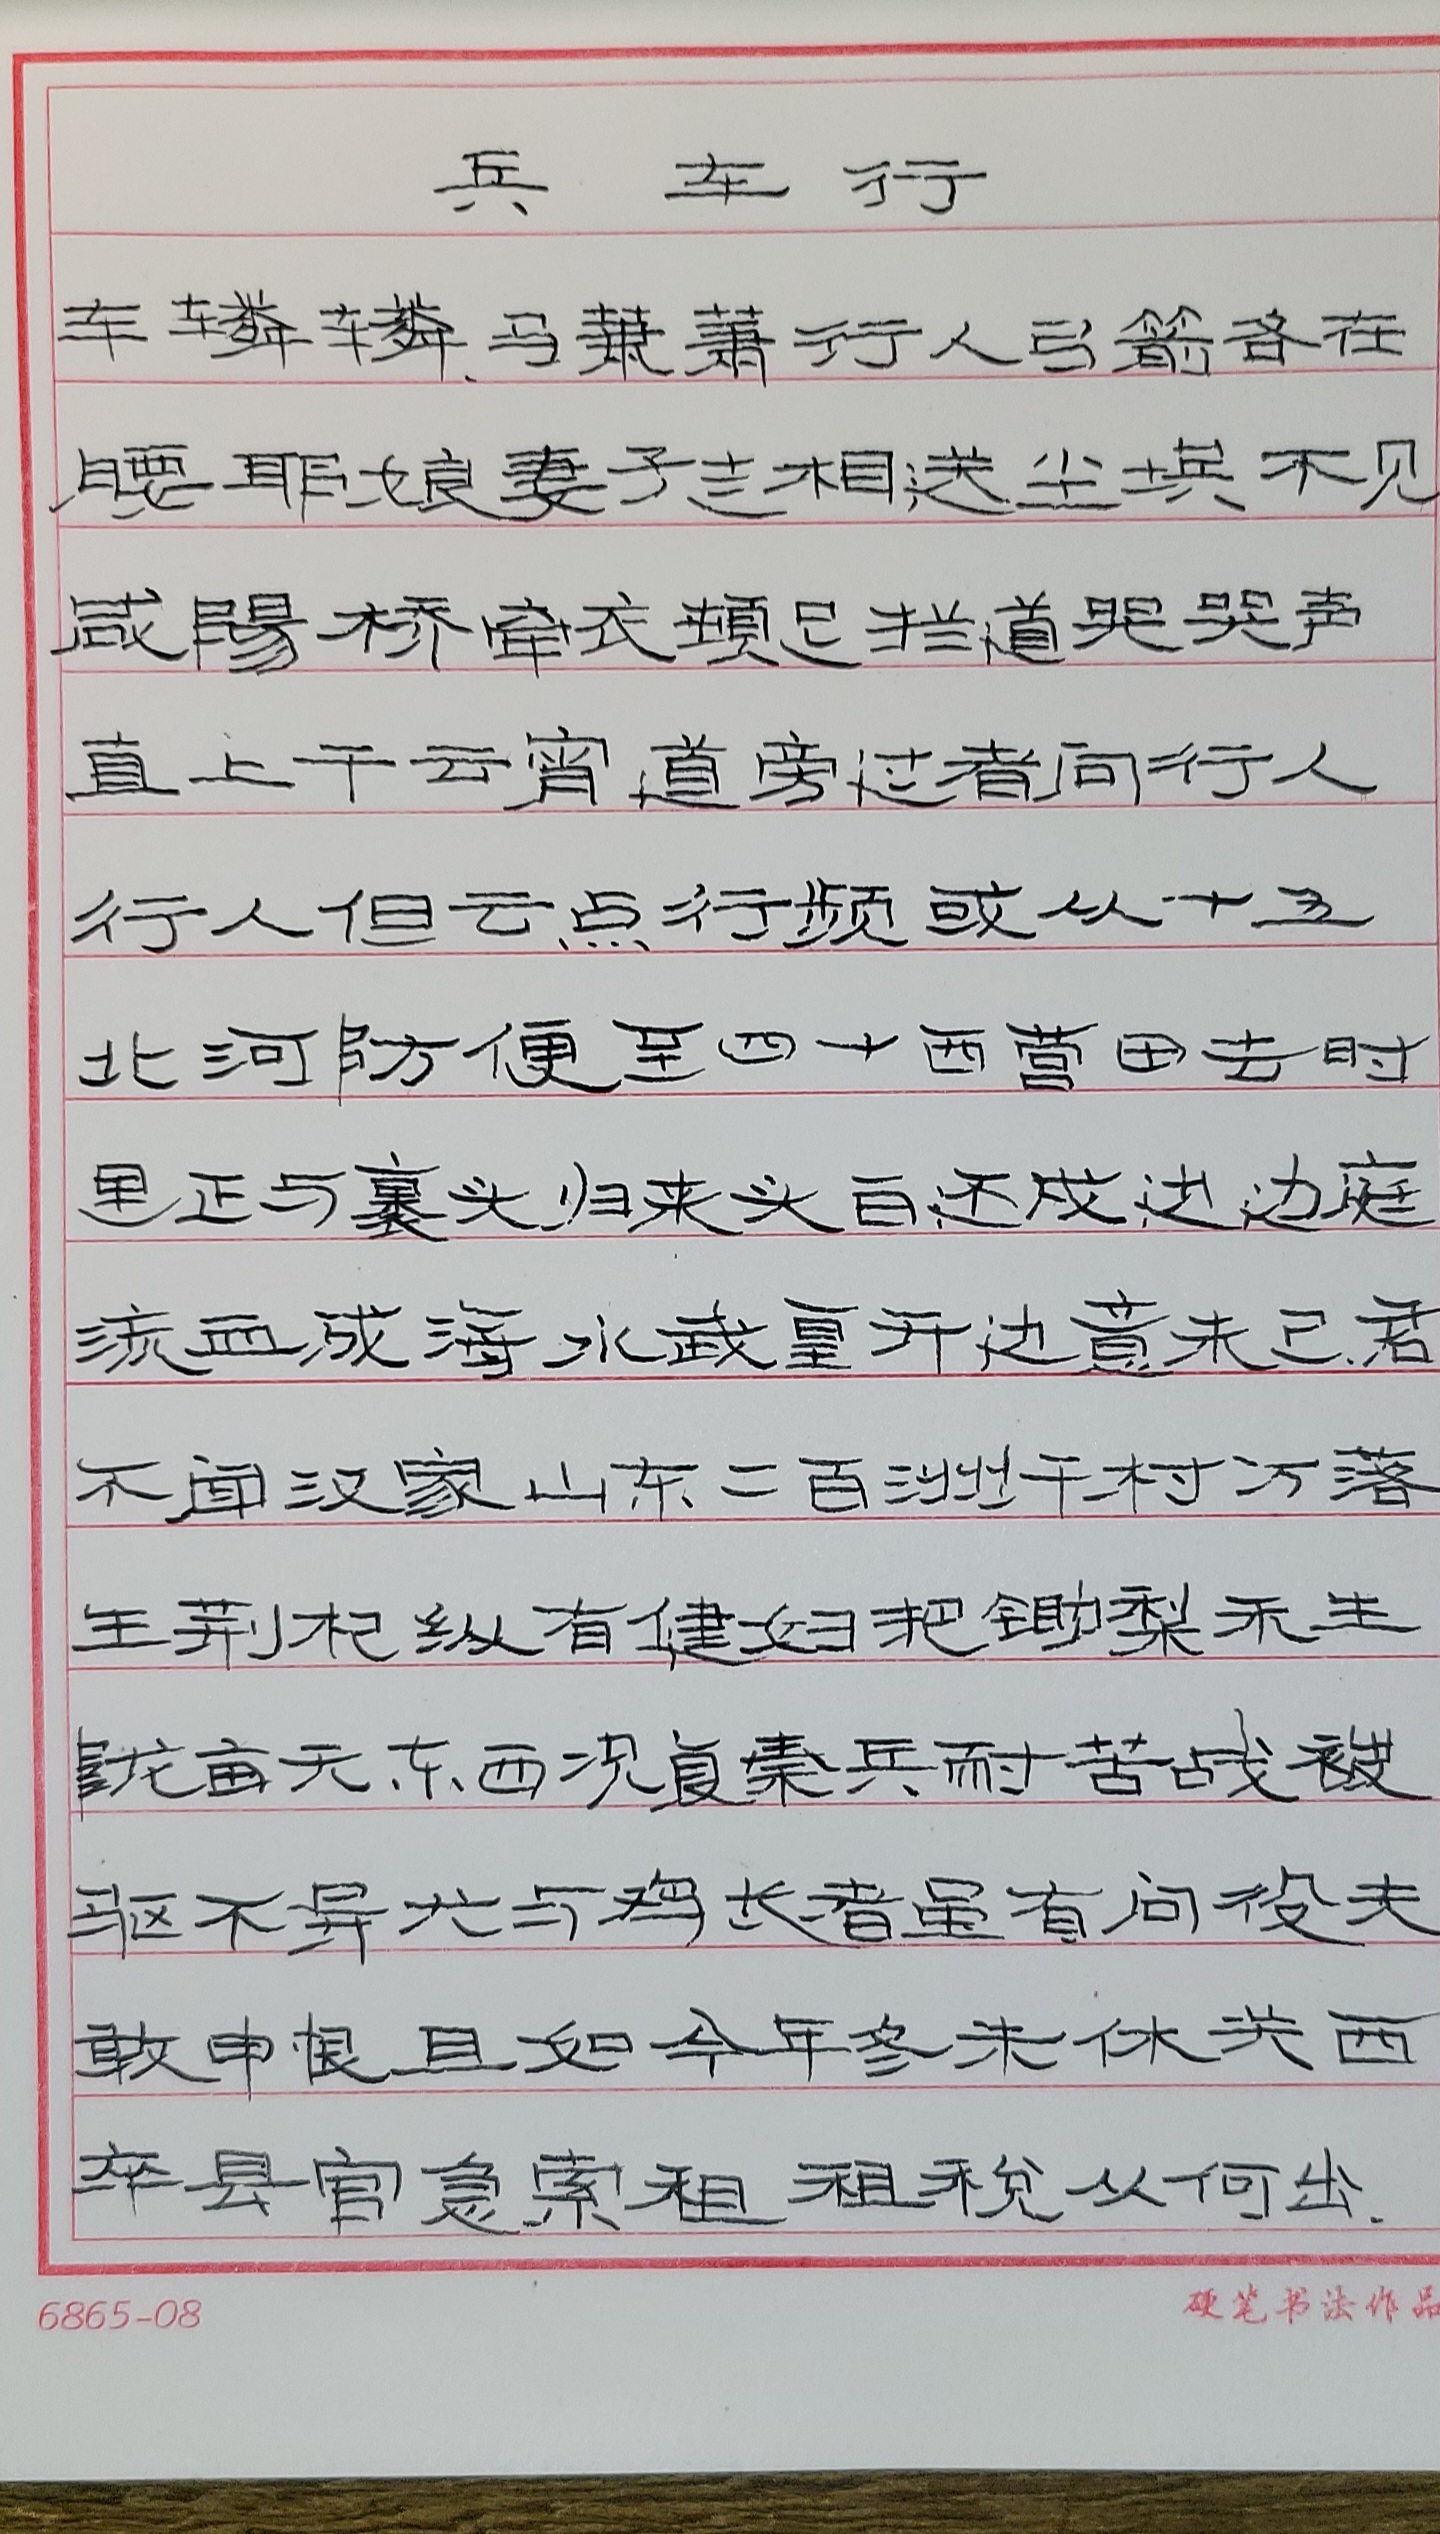 兵车行
车辚辚.马萧萧行人弓箭各在
腰耶娘妻子走相送尘埃不见
咸陽桥牵衣顿足拦道哭哭声
直上干云霄道旁过者问行人
行人但云点行频或从十五
北河防便至四十西营田去时
里正与裹头归来头白还戍边边庭
流血成海水武皇开边意未已君
不闻汉家山东二百洲千村万落
生荆杞纵有健妇把锄犁禾生
陇亩无东西况复秦兵耐苦战被
驱不异犬与鸡长者虽有问役夫
敢申恨且如今年冬未休关西
卒县官急索租租税从何出.
6865-08
硬笔书法作品